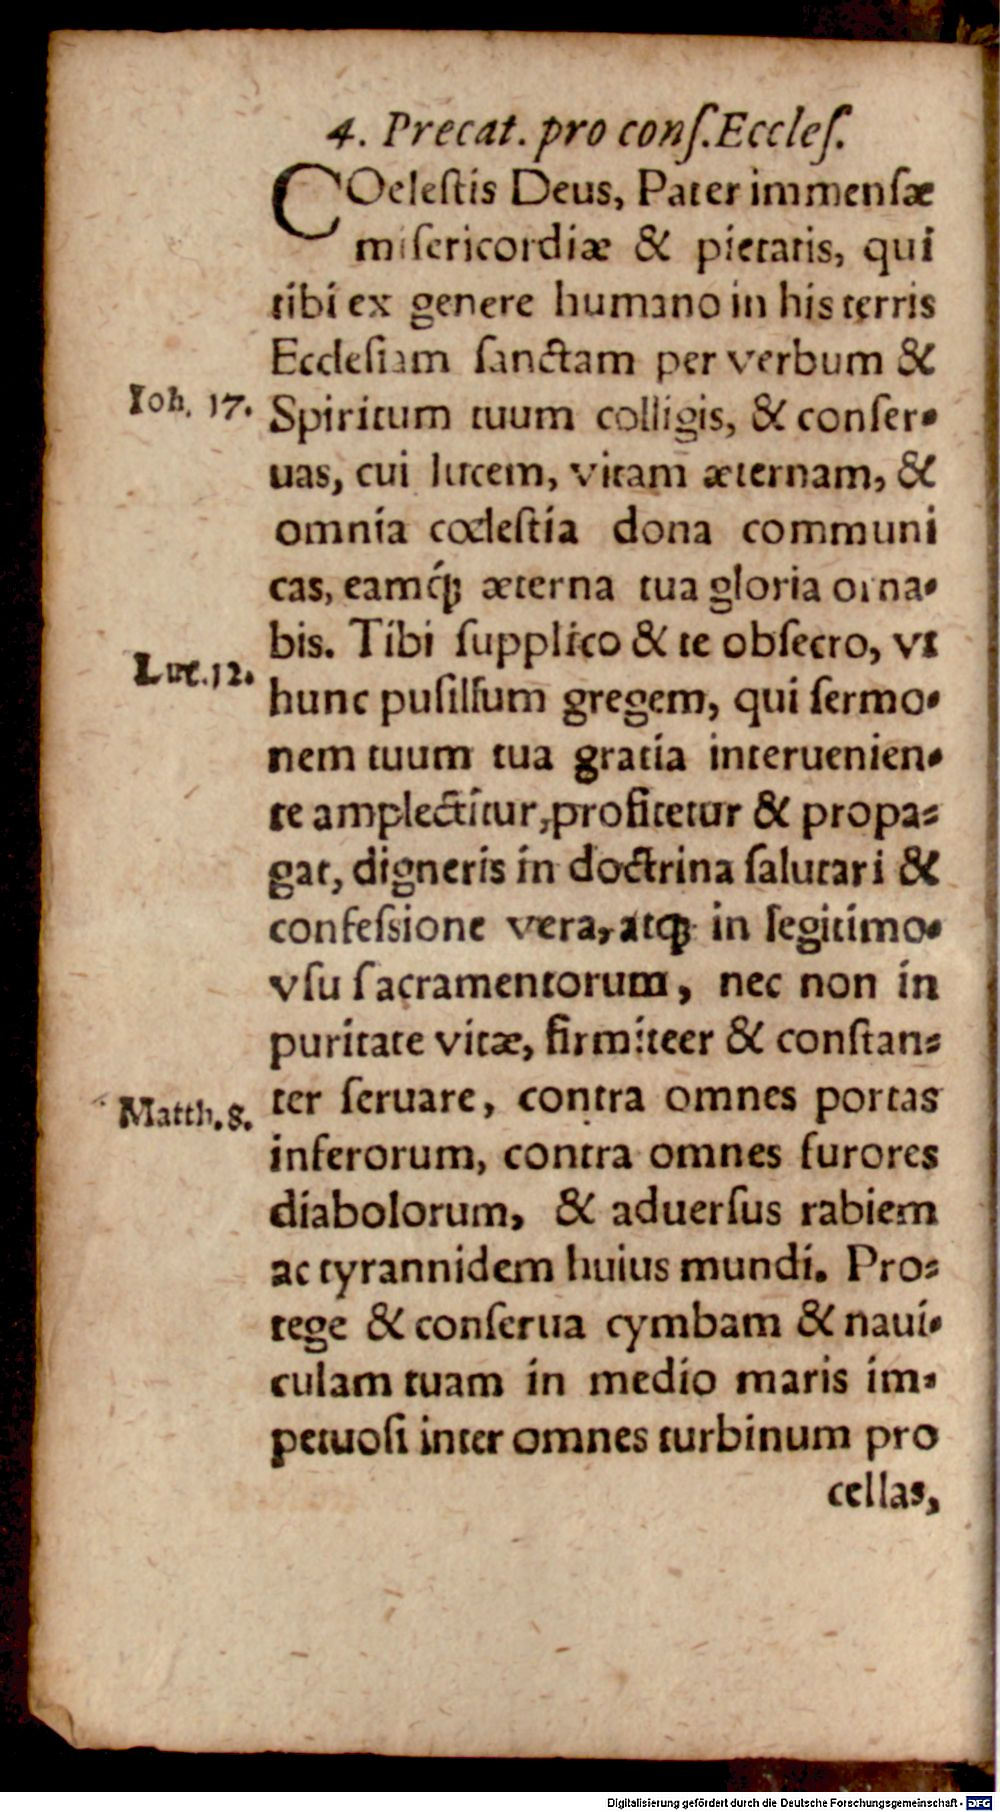 4. Precat. pro conſ. Eccleſ.
COeleſtis Deus, Pater immenſæ
miſericordiæ & pietatis, qui
tibi ex genere humano in his terris
Eccleſiam ſanctam per verbum &
Ioh. 17.
Spiritum tuum colligis, & conſer-
uas, cui lucem, vitam æternam, &
omnia cœleſtia dona communi
cas, eamq́; æterna tua gloria orna-
bis. Tibi ſupplico & te obſecro, vt
Luc. 12.
hunc puſillum gregem, qui ſermo-
nem tuum tua gratia interuenien-
te amplectitur, profitetur & propa-
gat, digneris in doctrina ſalutari &
confeſsione vera, atq; in legitimo-
vſu ſacramentorum, nec non in
puritate vitæ, firmiteer & conſtan-
Matth. 8.
ter ſeruare, contra omnes portas
inferorum, contra omnes furores
diabolorum, & aduerſus rabiem
ac tyrannidem huius mundi. Pro-
tege & conſerua cymbam & naui-
culam tuam in medio maris im-
petuoſi inter omnes turbinum pro
cellas,
Digitalisierung gefördert durch die Deutsche Forschungsgemeinschaft - DFG